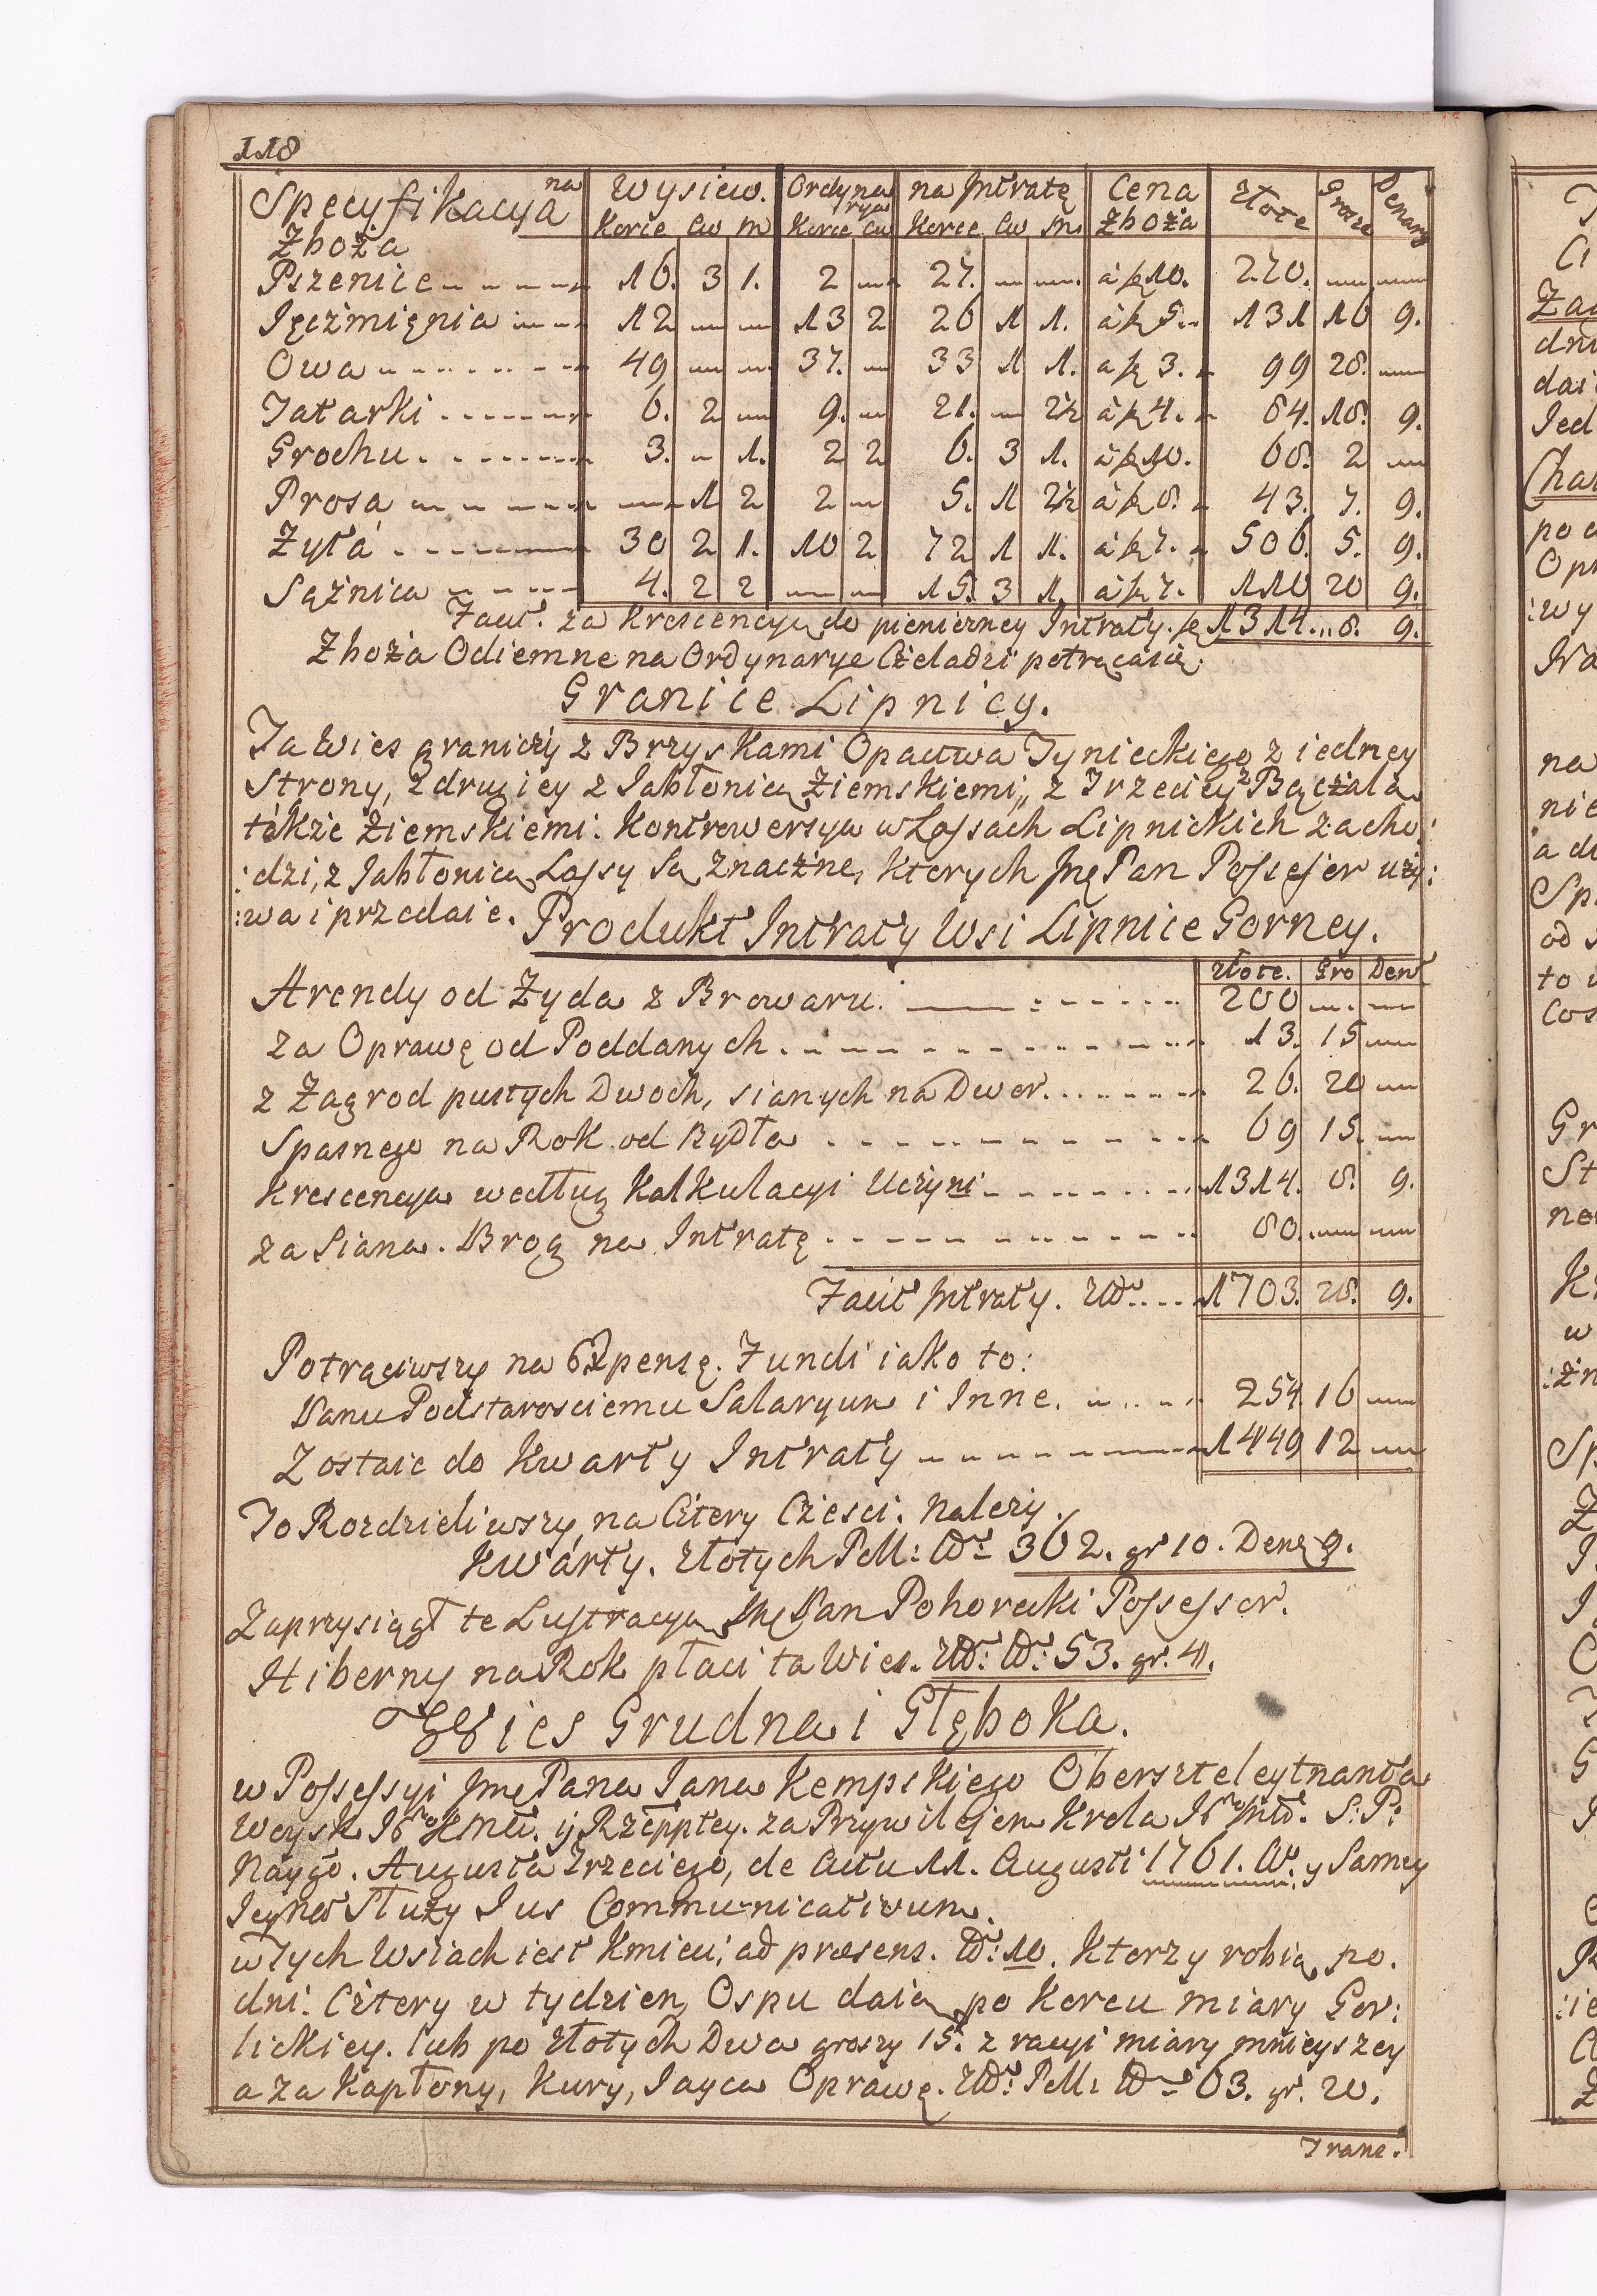 118
Specyfikacya na Wysiew. Ordynarya na Intratę Cena Złote Grosze Denary
Zboża Korce Cw m Korce Cw Korce Cw M. Zboża
Pszenice 16. 3 1. 2 27. à fl 10. 270.
Jęczmięnia 12 13 2 26 1 1. à fl 5. 131 16 9.
Owsa 49 37. 33 1 1. a fl 3. 99 28.
Tatarki 6. 2 9. 21. 2½ à fl 4. 84. 18. 9.
Grochu 3. 1. 2 2 6. 3 1. à fl 10. 68. 2
Prosa 1 2 2 5. 1 2½ à fl 8. 43. 7. 9.
Żytá 30 2 1. 10 2 72 1 1. à fl 7. 506. 5. 9.
Sążnica 4. 2 2 15. 3 1. à fl 7. 110 20 9.
Facit. za Krescencyą do pienierzney Intraty. fl 1314...8. 9.
Zboża Odiemne na Ordynarye Czeladzi potrącasię.
Granice Lipnicy.
Ta Wies graniczy z Brzyskami Opactwa Tynieckiego z iedney
Strony, z drugiey z Jabłonicą Ziemskiemi, z Trzeciey z Bączala
tákże Ziemskiemi. Kontrowersya w Lassach Lipnickich zacho:
:dzi, z Jabłonicą Lassy są znaczne, ktorych Jmę Pan Possesor uży:
:wa i przedaie. Produkt Intraty Wsi Lipnice Gorney.
Złote. Gro Den
Arendy od Żyda z Browaru. 200
za Oprawę od Poddanych 13. 15
z Zagrod pustych Dwoch, sianych na Dwor. 26. 20
Spasnego na Rok od Bydła 69 15.
Krescencya według Kalkulacyi Uczyni 1314. 8. 9.
za Siana. Brog na Intratę 80.
Facit Intraty. 1703. 28. 9.
Potrąciwszy na Expensę. Fundi iako to:
Panu Podstarosciemu Salaryum i Inne. 254. 16
Zostaie do Kwarty Intraty 1449 12
To Rozdzieliwszy na Cztery Czesci. Nalezy.
Kwárty. Złotych Poll: 362. gr 10. Den 9.
Zaprzysiągł te Lustracyą Jmę Pan Pohorecki Possessor.
Hiberny na Rok płaci ta Wies. 53. gr. 4.
Wies Grudna i Głęboka.
w Possessyi Jmę Pana Jana Kempskiego Obersztelejtnanta
Woysk JKMci. ij Rzeppltey. za Przywilejem Krola S: P:
Nayżo. Augusta Trzeciego, de Actu 11. Augusti 1761. y Samey
Jeyme Służy Jus Communicativum.
w Tych Wsiach iest Kmieci, ad præsens. 10. Ktorzy robią po.
dni. Cztery w tydzien, Ospu daią po Korcu miary Gor:
lickiey. lub po Złotych Dwa groszy 15. z racyi miary mnieyszey
a za Kapłony, Kury, Jayca Oprawę. Poll: 63. gr. 20.
Trane.